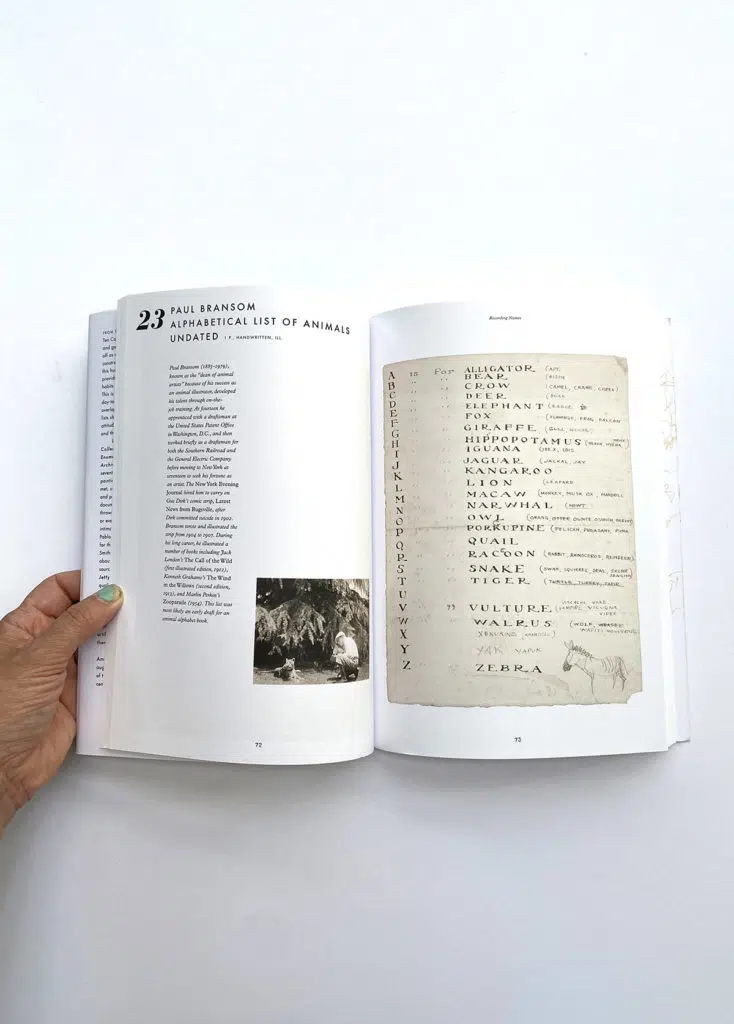 23 PAUL BRANSOM
ALPHABETICAL LIST OF ANIMALS
UNDATED 1 P., HANDWRITTEN, ILL.
Paul Bransom (1885–1979),
known as the "dean of animal
artists" because of his success as
an animal illustrator, developed
his talents through on-the-
job training. At fourteen he
apprenticed with a draftsman at
the United States Patent Office
in Washington, D.C., and then
worked briefly as a draftsman for
both the Southern Railroad and
the General Electric Company
before moving to New York at
seventeen to seek his fortune as
an artist. The New York Evening
Journal hired him to carry on
Gus Dirk's comic strip, Latest
News from Bugville, after
Dirk committed suicide in 1902.
Bransom wrote and illustrated the
strip from 1904 to 1907. During
his long career, he illustrated a
number of books including Jack
London's The Call of the Wild
(first illustrated edition, 1912),
Kenneth Grahame's The Wind
in the Willows (second edition,
1913), and Marlin Perkins's
Zooparade (1954). This list was
most likely an early draft for an
animal alphabet book.
72
Recording Names
A is for ALLIGATOR (APE
B " " BEAR (BISON
C " " CROW (CAMEL, CRANE,
D " " DEER
E " " ELEPHANT
F " " FOX (FLAMINGO, FROG, FALCON
G " " GIRAFFE
H " " HIPPOPOTAMUS
I " " IGUANA (IBEX, IBIS
J " " JAGUAR (JACKAL, JAY
K " " KANGAROO
L " " LION (LEOPARD
M " " MACAW (MONKEY, MUSK OX, MANDRILL
N " " NARWHAL (NEWT
O " " OWL
P " " PORKUPINE (PELICAN, PHEASANT, PUMA
Q " " QUAIL
R " " RACOON (RABBIT, RHINOCEROS, REINDEER
S " " SNAKE (SWAN, SQUIRREL, SEAL, SKUNK
T " " TIGER (TURTLE, TURKEY, TAPIR
U
V " VULTURE
W WALRUS (WOLF, WEASEL
X
Y YAK
Z " " ZEBRA
73